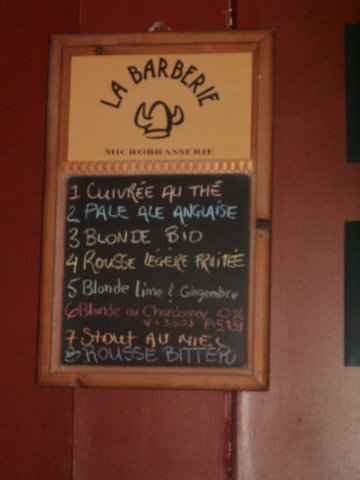 LA BARBERIE
MICROBRASSERIE
1 CUIVRÉE AU THÉ
2 PALE ALE ANGLAISE
3 BLONDE BIO
4 ROUSSE LÉGÈRE FRUITÉE
5 Blonde lime & Gingembre
6 Blonde au Chardonnay 10%
V = 3,50$ P = 5,75$
7 STOUT AU MIEL
8 ROUSSE BITTER